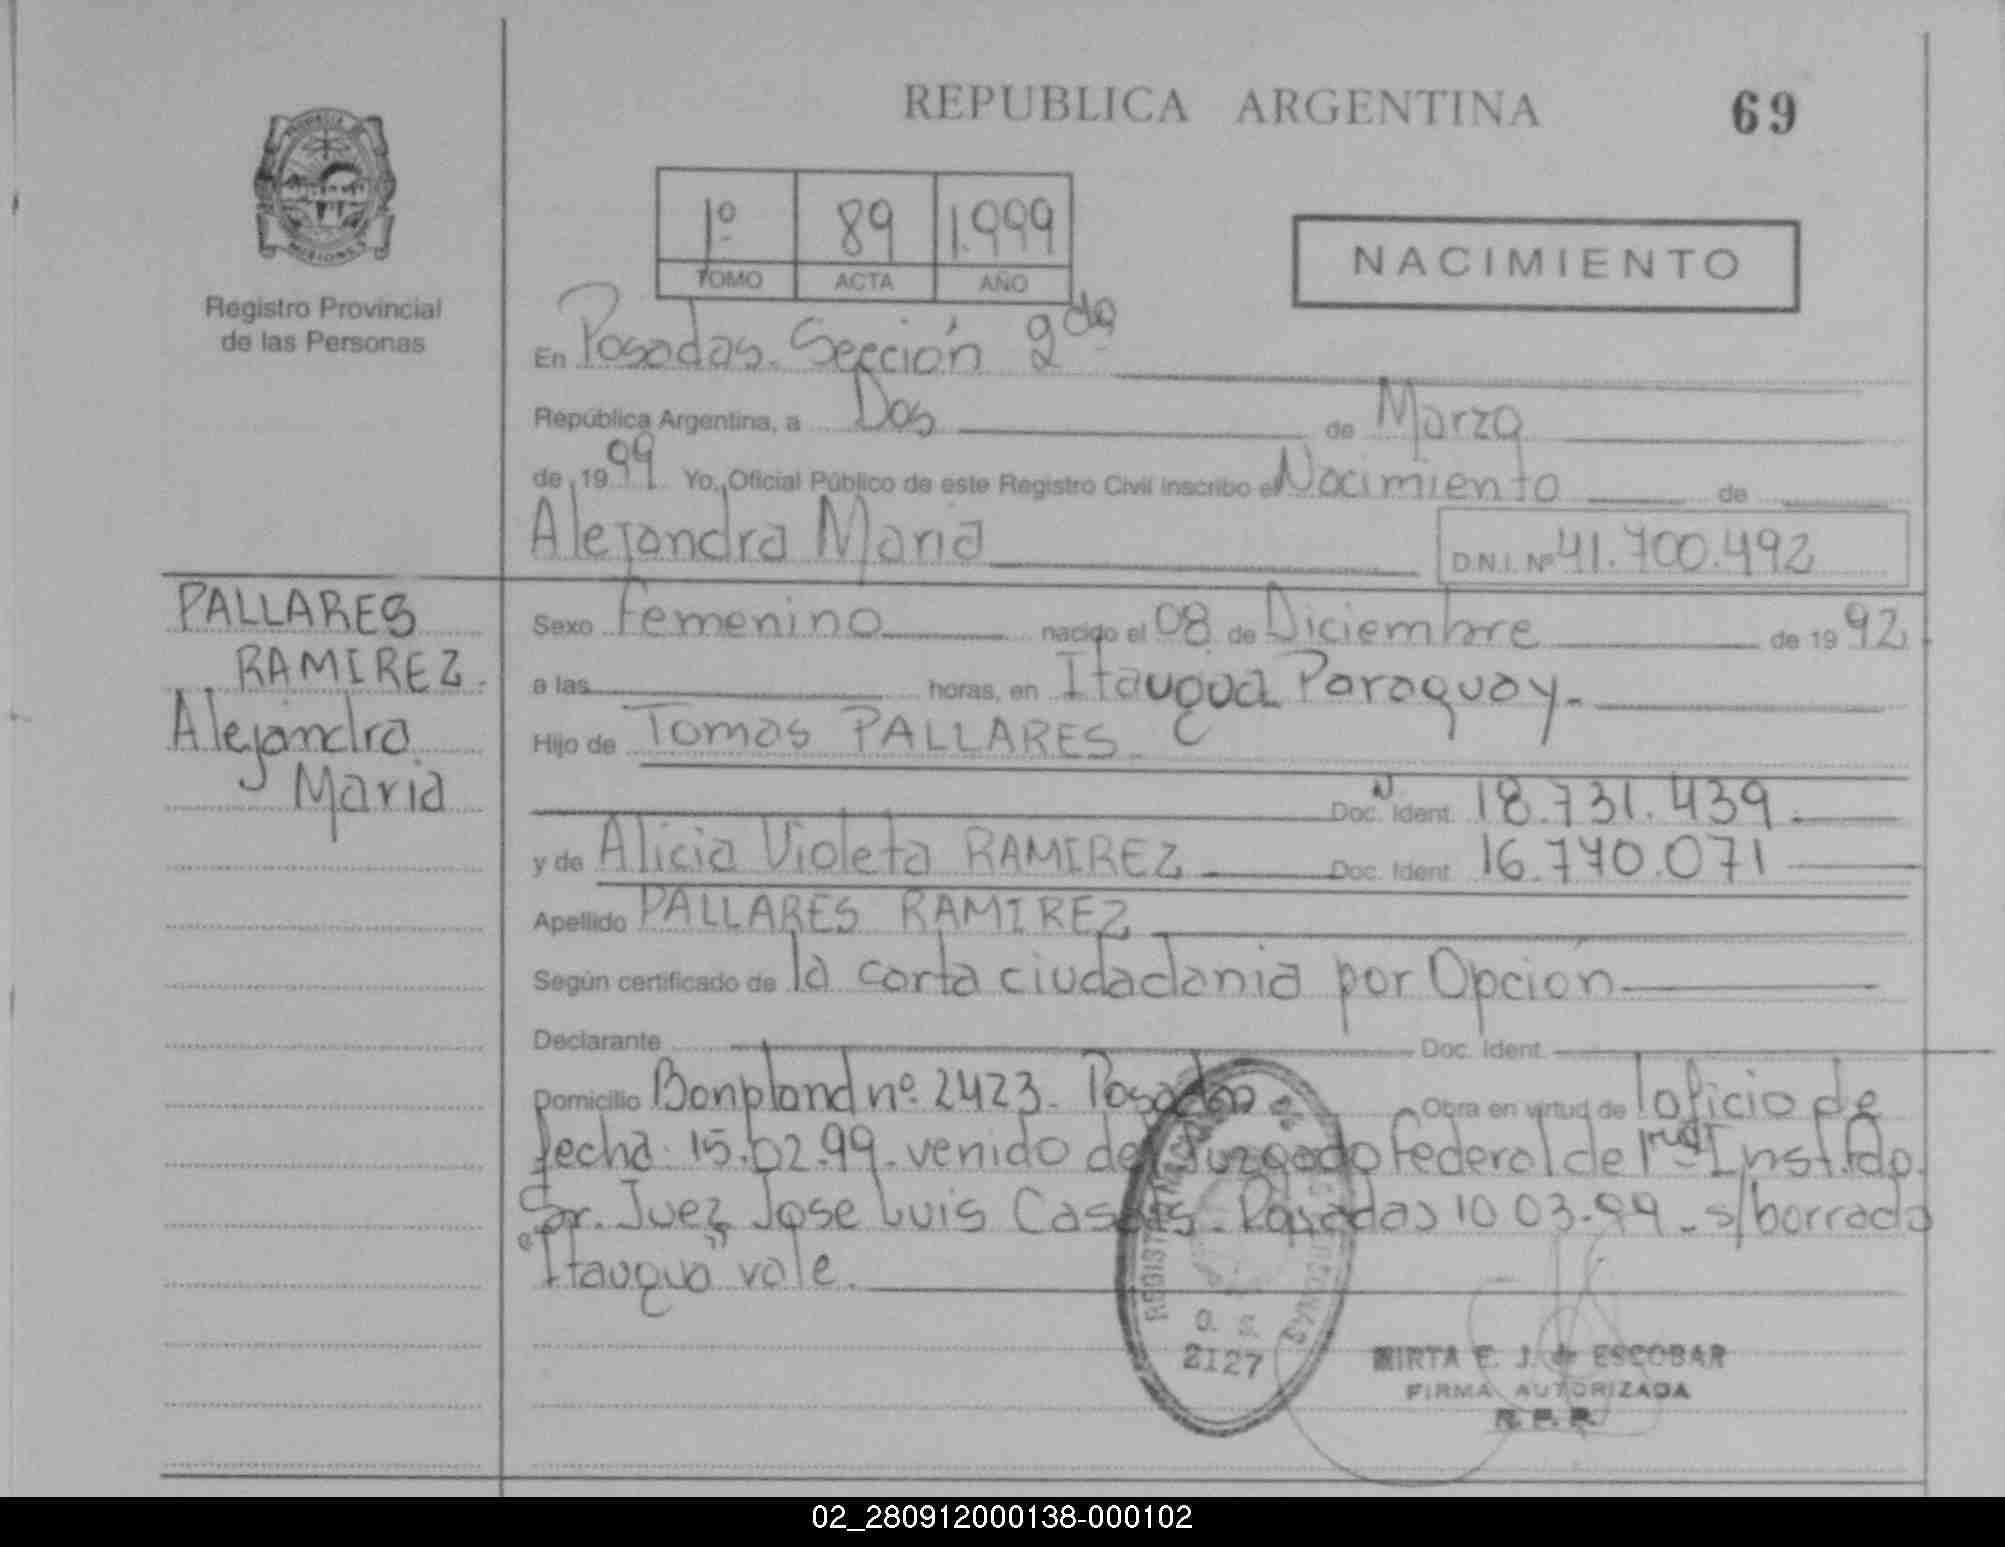 REPUBLICA ARGENTINA
69
PROVINCIA DE
MISIONES
Registro Provincial
de las Personas
1º 89 1.999
TOMO ACTA AÑO
NACIMIENTO
En Posadas. Sección 2da
República Argentina, a Dos de Marzo
de 1999 Yo, Oficial Público de este Registro Civil inscribo el Nacimiento de
Alejandra Maria D.N.I. Nº 41.700.492
PALLARES
RAMIREZ.
Alejandra
Maria
Sexo Femenino nacido el 08 de Diciembre de 1992
a las horas, en Itaugua Paraguay.
Hijo de Tomas PALLARES
Doc. Ident. 18.731.439.
y de Alicia Violeta RAMIREZ Doc. Ident. 16.740.071
Apellido PALLARES RAMIREZ
Según certificado de la carta ciudadania por Opción
Declarante Doc. Ident.
Domicilio Bonpland nº 2423. Posadas Obra en virtud de oficio de
fecha 15.02.99. venido del Juzgado Federal de 1ra Inst. fdo.
Sr. Juez Jose Luis Casals. Posadas 10 03-99. s/borrado
"Itaugua" vale.
2127
MIRTA E. J. de ESCOBAR
FIRMA AUTORIZADA
R. P. P.
02_280912000138-000102